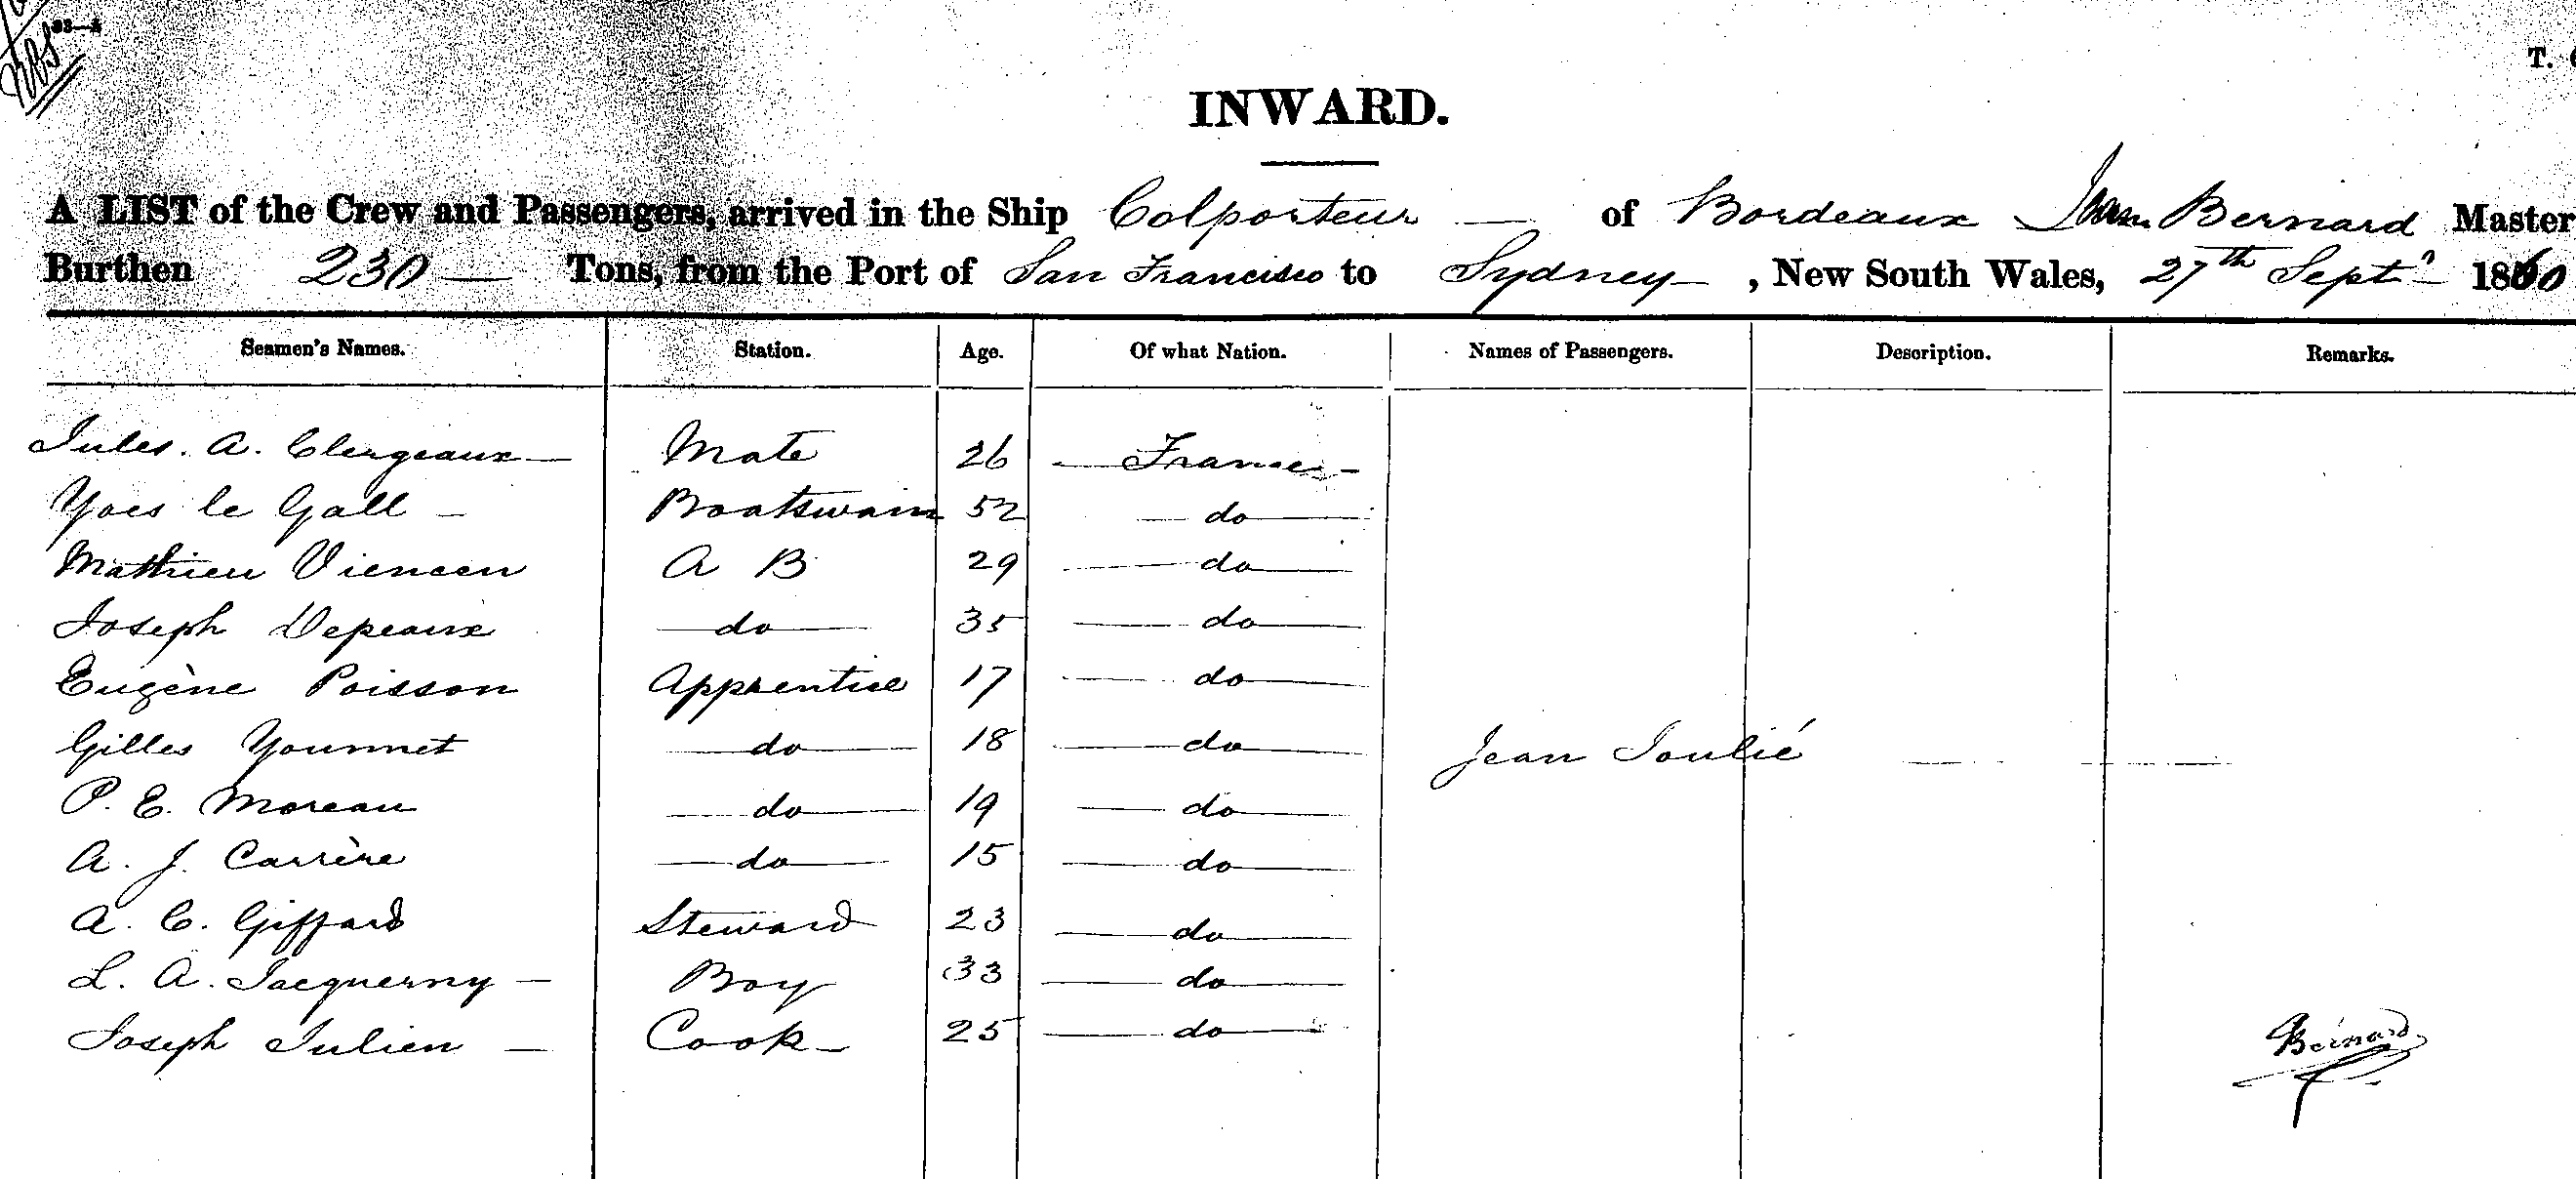 INWARD.
A LIST of the Crew and Passengers, arrived in the Ship Colporteur of Bordeaux Bernard Master
Burthen 230 Tons, from the Port of San Francisco to Sydney, New South Wales, 27th Sept 1860
Seamen's Names. Station. Age. Of what Nation. Names of Passengers. Description. Remarks.
Jules. A. Clergeaux Mate 26 France
Yves le Gall Boatswain 52 do
Mathieu Viencen A B 29 do
Joseph Depeaux do 35 do
Eugène Poisson Apprentice 17 do
Gilles Younnet do 18 do Jean Soulié
P. E. Moreau do 19 do
A. J. Carrère do 15 do
A. C. Giffard Steward 23 do
L. A. Jacquerny Boy 33 do
Joseph Julien Cook 25 do
Bernard